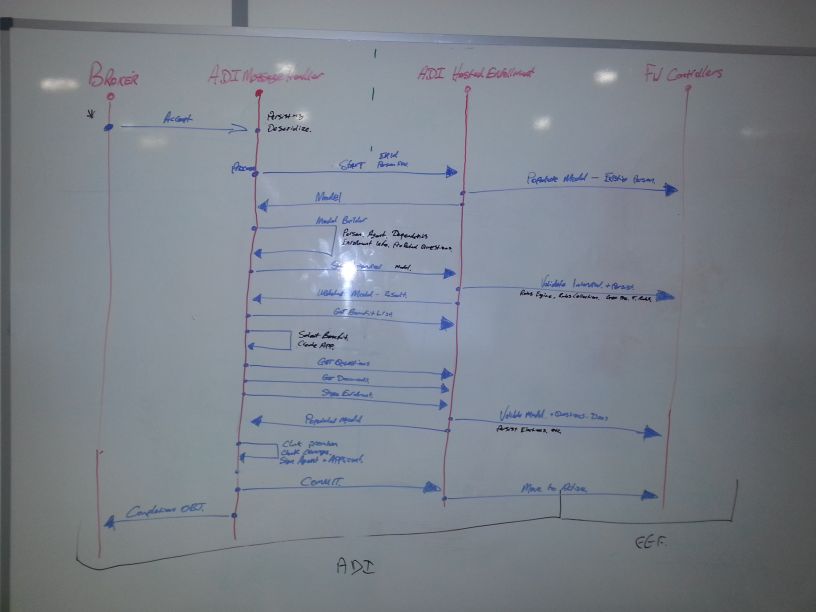 BROKER
ADI Message Handler
ADI Hosted Enrollment
FW Controllers
Accept
Persisting
Deserialize.
Process
START
Populate Model - Existing Person.
Model
Model Builder
Person, Agent, Dependents
Enrollment Info,
Questions
Model.
Validate
+ Persist.
Rules Engine, Rules Collection,
Updated Model - Result.
Get Benefit List
Select Benefit.
Create App.
Get Questions
Get Documents
Store Enrollment.
Populated Model
Validate Model + Questions, Docs
Persist Elections, etc.
Check premium
Check coverage
Sign Agent + Applicant.
COMMIT.
Move to Active
Completion OBJ.
ADI
EEF.